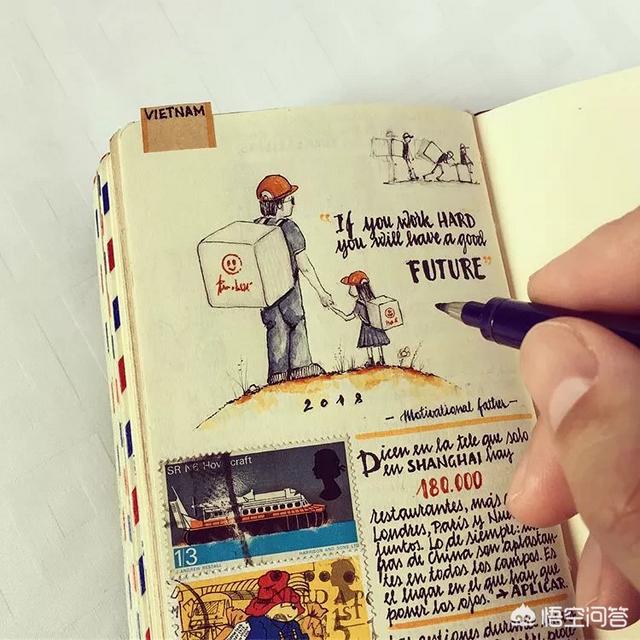 VIETNAM
"If you work HARD
you will have a good
FUTURE"
2018
- Motivational father -
Dicen en la tele que solo
en SHANGHAI hay
180.000
restaurantes, más
Londres, París y Nu
juntos. Lo de siempre:
de China son aplastan-
tes en todos los campos. Es
el lugar en el que hay que
poner los ojos. → APLICAR.
SR N6 Hovercraft
1'3
J ANDREW RESTALL
HARRISON AND SONS LTD
1st
悟空问答